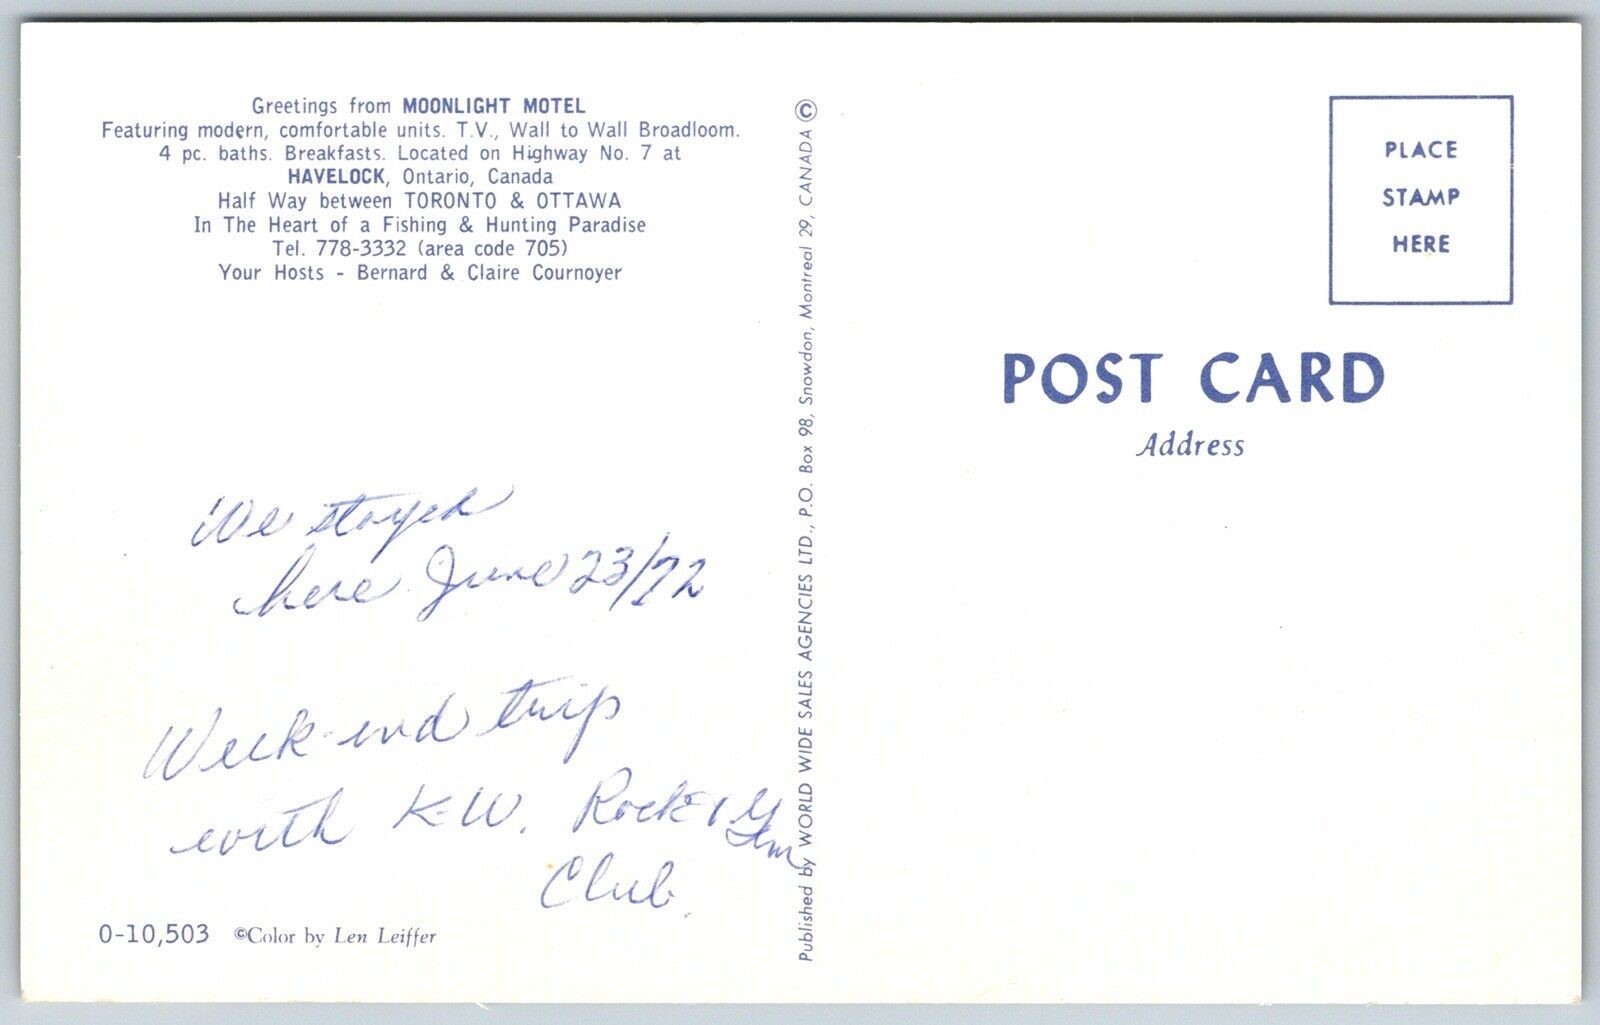 Greetings from MOONLIGHT MOTEL
Featuring modern, comfortable units. T.V., Wall to Wall Broadloom.
4 pc. baths. Breakfasts. Located on Highway No. 7 at
HAVELOCK, Ontario, Canada
Half Way between TORONTO & OTTAWA
In The Heart of a Fishing & Hunting Paradise
Tel. 778-3332 (area code 705)
Your Hosts - Bernard & Claire Cournoyer
We stayed
here June 23/72
Week-end trip
with K-W. Rock & Gem
Club.
0-10,503 ©Color by Len Leiffer
Published by WORLD WIDE SALES AGENCIES LTD., P.O. Box 98, Snowdon, Montreal 29, CANADA ©
PLACE
STAMP
HERE
POST CARD
Address